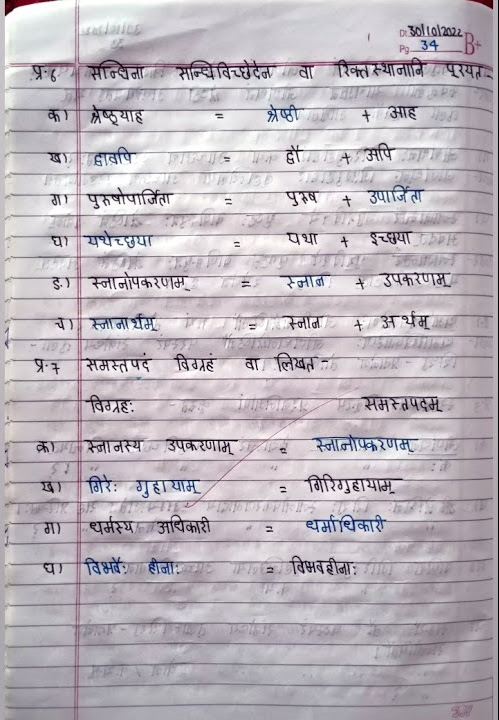 Dt. 30/10/2022
Pg. 34 B+
प्र.6 सन्धिना सन्धिविच्छेदेन वा रिक्तस्थानानि पूरयत-
क) श्रेष्ठ्याह = श्रेष्ठी + आह
ख) द्वावपि = द्वौ + अपि
ग) पुरुषोपार्जिता = पुरुष + उपार्जिता
घ) यथेच्छया = यथा + इच्छया
ङ.) स्नानोपकरणम् = स्नान + उपकरणम्
च) स्नानार्थम् = स्नान + अर्थम्
प्र.7 समस्तपदं विग्रहं वा लिखत-
विग्रह: समस्तपदम्
क) स्नानस्य उपकरणाम् = स्नानोपकरणम्
ख) गिरे: गुहायाम् = गिरिगुहायाम्
ग) धर्मस्य अधिकारी = धर्माधिकारी
घ) विभवै: हीना: = विभवहीना: